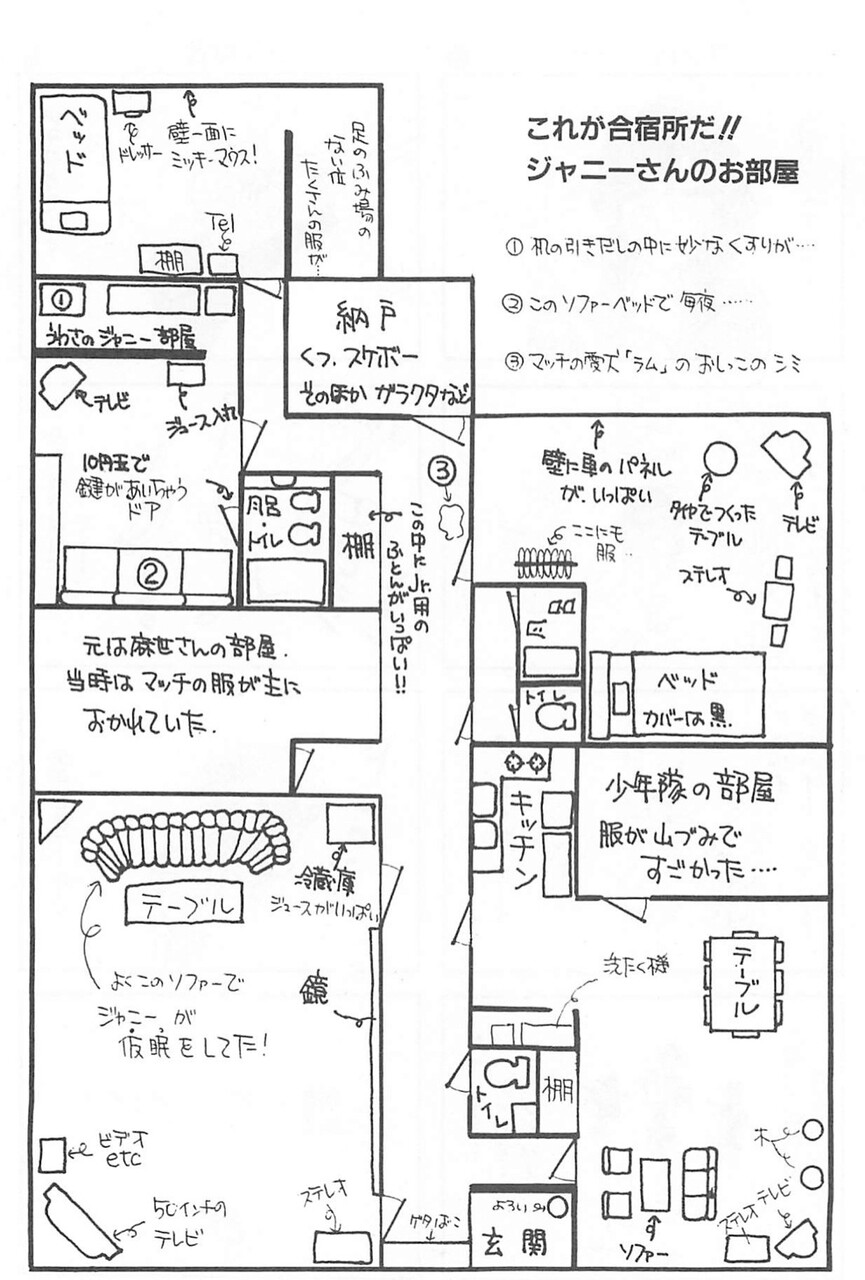 これが合宿所だ!!
ジャニーさんのお部屋
① 机の引きだしの中に妙なくすりが‥‥
② このソファーベッドで毎夜‥‥‥
③ マッチの愛犬「ラム」のおしっこのシミ
ベッド
ドレッサー
壁一面に
ミッキーマウス!
足のふみ場の
ない位
たくさんの服が…
Tel
棚
①
うわさのジャニー部屋
納戸
くつ、スケボー
そのほか ガラクタなど
テレビ
ジュース入れ
10円玉で
鍵があいちゃう
ドア
②
風呂・トイレ
棚
この中にJr.用の
ふとんがいっぱい!!
③
壁に車のパネル
が、いっぱい
タイヤでつくった
テーブル
テレビ
ここにも
服…
ステレオ
ベッド
カバーは黒.
トイレ
元は麻世さんの部屋.
当時はマッチの服が主に
おかれていた.
キッチン
少年隊の部屋
服が山づみで
すごかった‥‥
テーブル
冷蔵庫
ジュースがいっぱい
よくこのソファーで
ジャニーが
仮眠をしてた!
鏡
洗たく機
テーブル
トイレ
棚
ビデオ
etc
50インチの
テレビ
ステレオ
ゲタばこ
よろい
玄関
木
ソファー
ステレオ
テレビ